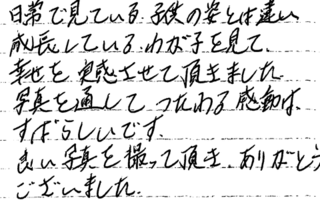 日常で見ている子供の姿とは違い
成長しているわが子を見て、
幸せを実感させて頂きました。
写真を通してつたわる感動は、
すばらしいです。
良い写真を撮って頂き、ありがとう
ございました。